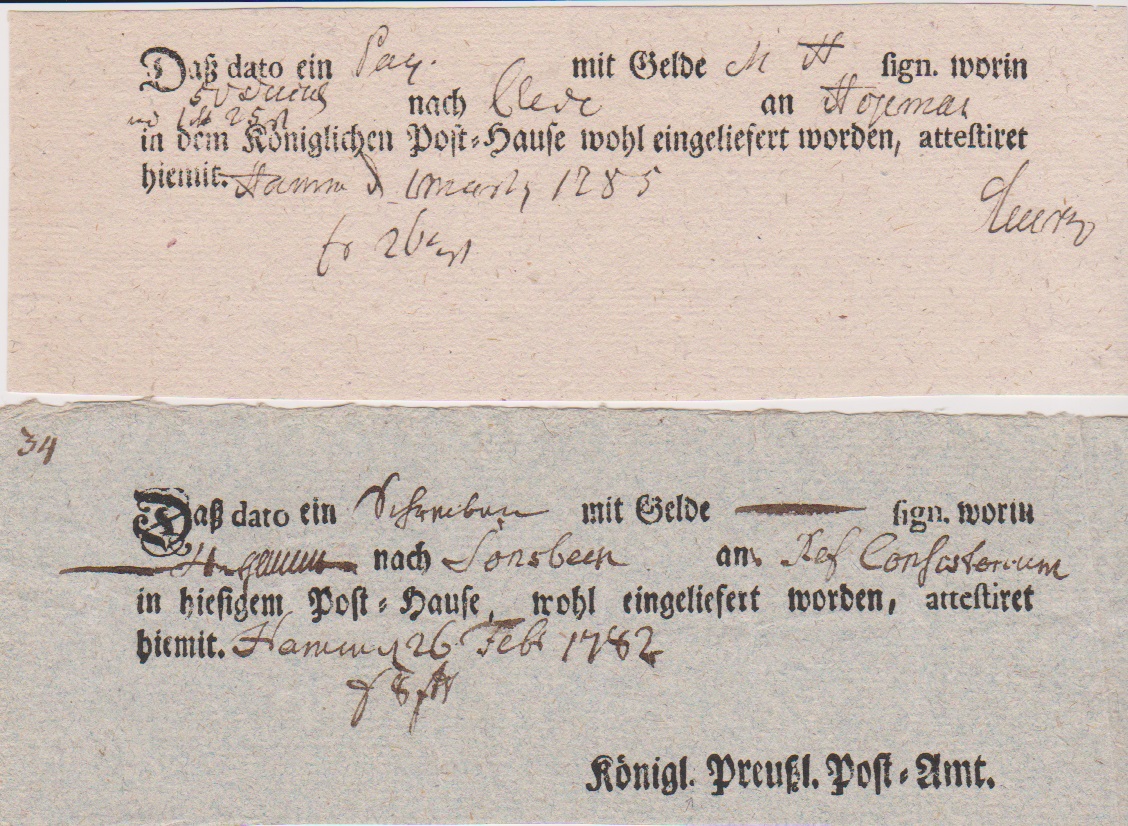 Daß dato ein Paq. mit Gelde M H sign. worin
50 nach Cleve an
in dem Königlichen Post-Hause wohl eingeliefert worden, attestiret
hiemit. Hamm d 1 marty 1785
fr
34
Daß dato ein Schreiben mit Gelde sign. worin
nach Sonsbeck an Ref Consistorium
in hiesigem Post-Hause, wohl eingeliefert worden, attestiret
hiemit. Hamm d 26 Feb 1782
Königl. Preußl. Post-Amt.